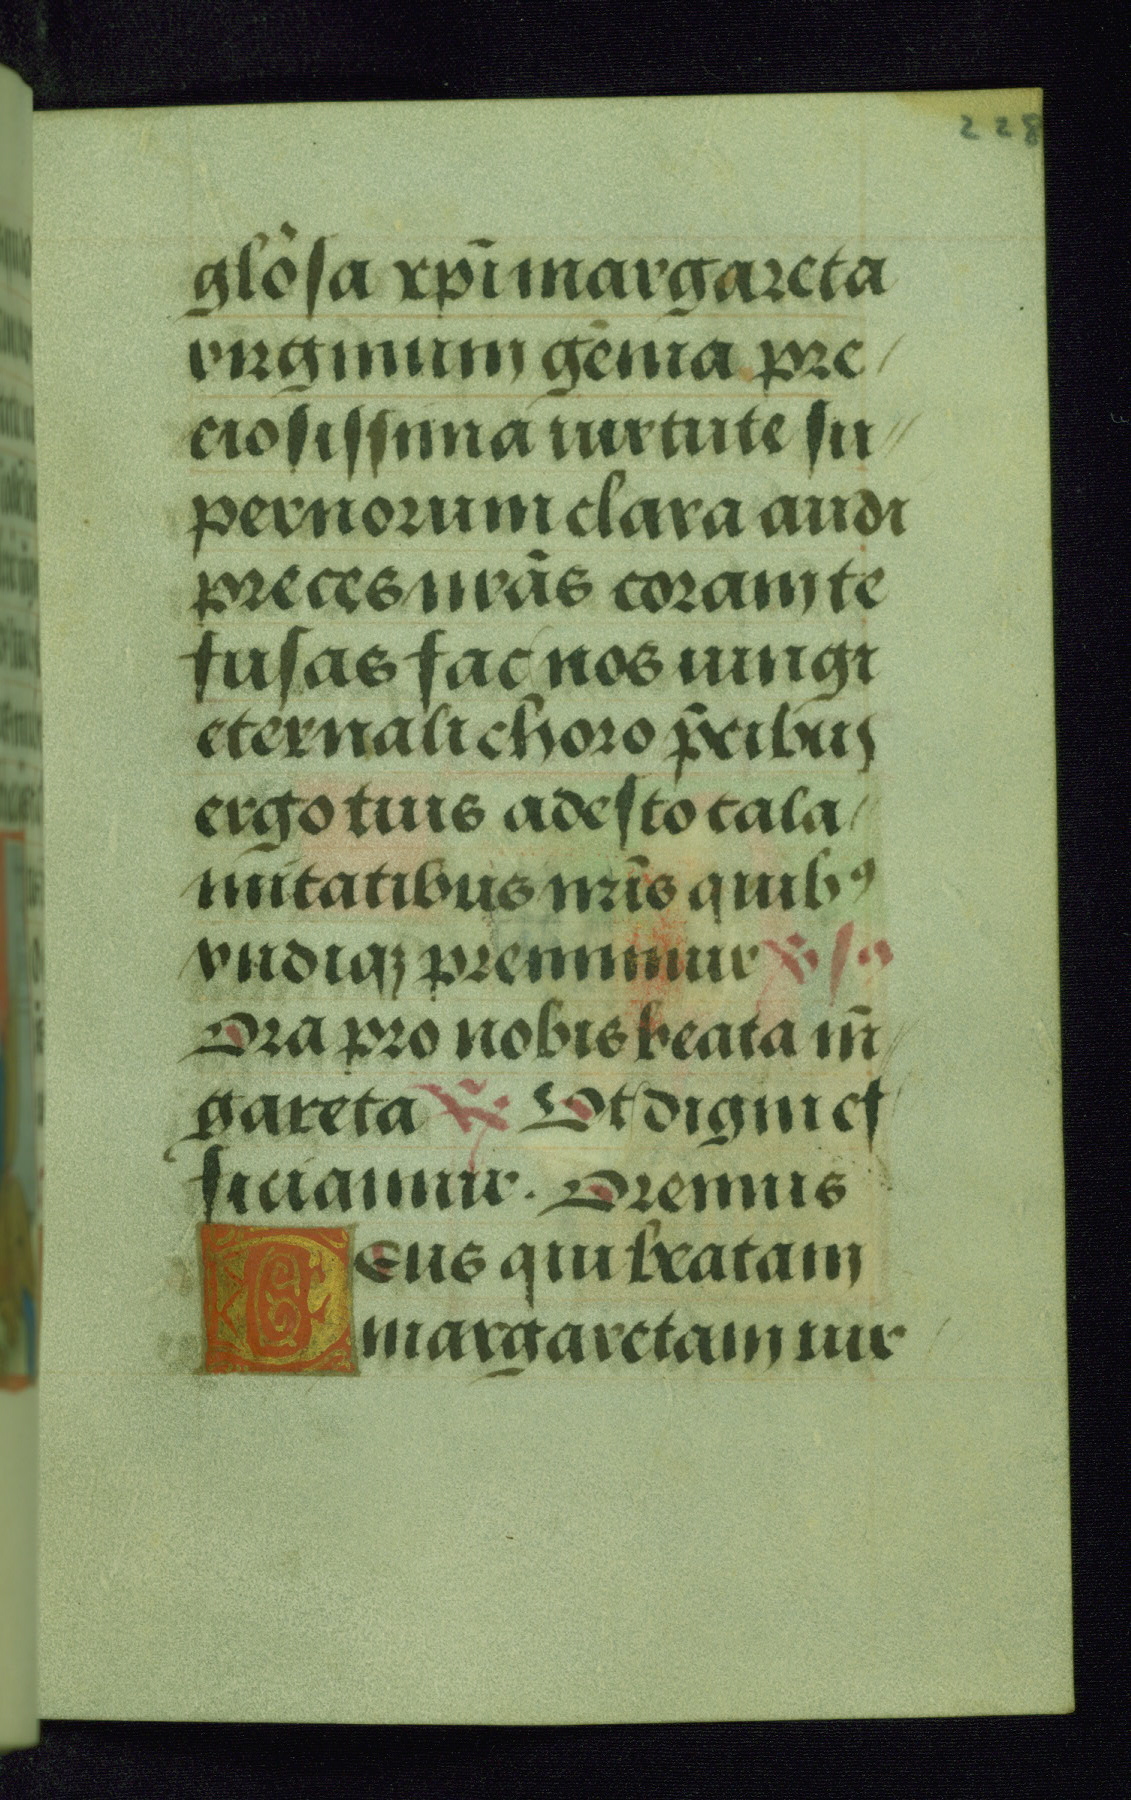 228
glo̅sa xpi̅ margareta
virginum ge̅ma pre/
ciosissima uirtute su//
pernorum clara audi
preces nr̅as coram te
fusas fac nos iungi
eternali choro p̅cibus
ergo tuis adesto cala/
mitatibus nr̅is quibꝰ
vndiqꝫ premimur ℣
Ora pro nobis beata m̅/
gareta ℟ Ut digni ef/
ficiamur. Oremus
Deus qui beatam
margaretam uir